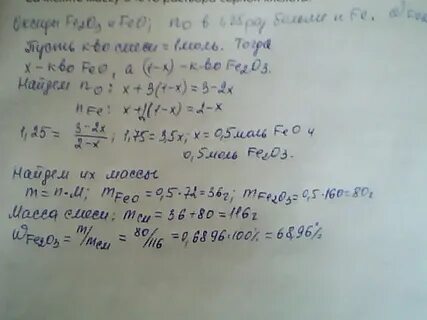 раствора серной
оксиды Fe₂O₃ и FeO; nO в 1,25 раз больше n Fe.
Пусть к-во смеси = 1 моль. Тогда
x - к-во FeO, а (1-x) - к-во Fe₂O₃.
Найдем nO: x + 3(1-x) = 3-2x
nFe: x + 2(1-x) = 2-x
1,25 = 3-2x / 2-x ; 1,75 = 3,5x; x = 0,5 моль FeO и
0,5 моль Fe₂O₃.
Найдем их массы
m = n·M; mFeO = 0,5·72 = 36г; mFe₂O₃ = 0,5·160 = 80г
Масса смеси: mсм = 36 + 80 = 116г
WFe₂O₃ = m/mсм = 80/116 = 0,6896·100% = 68,96%